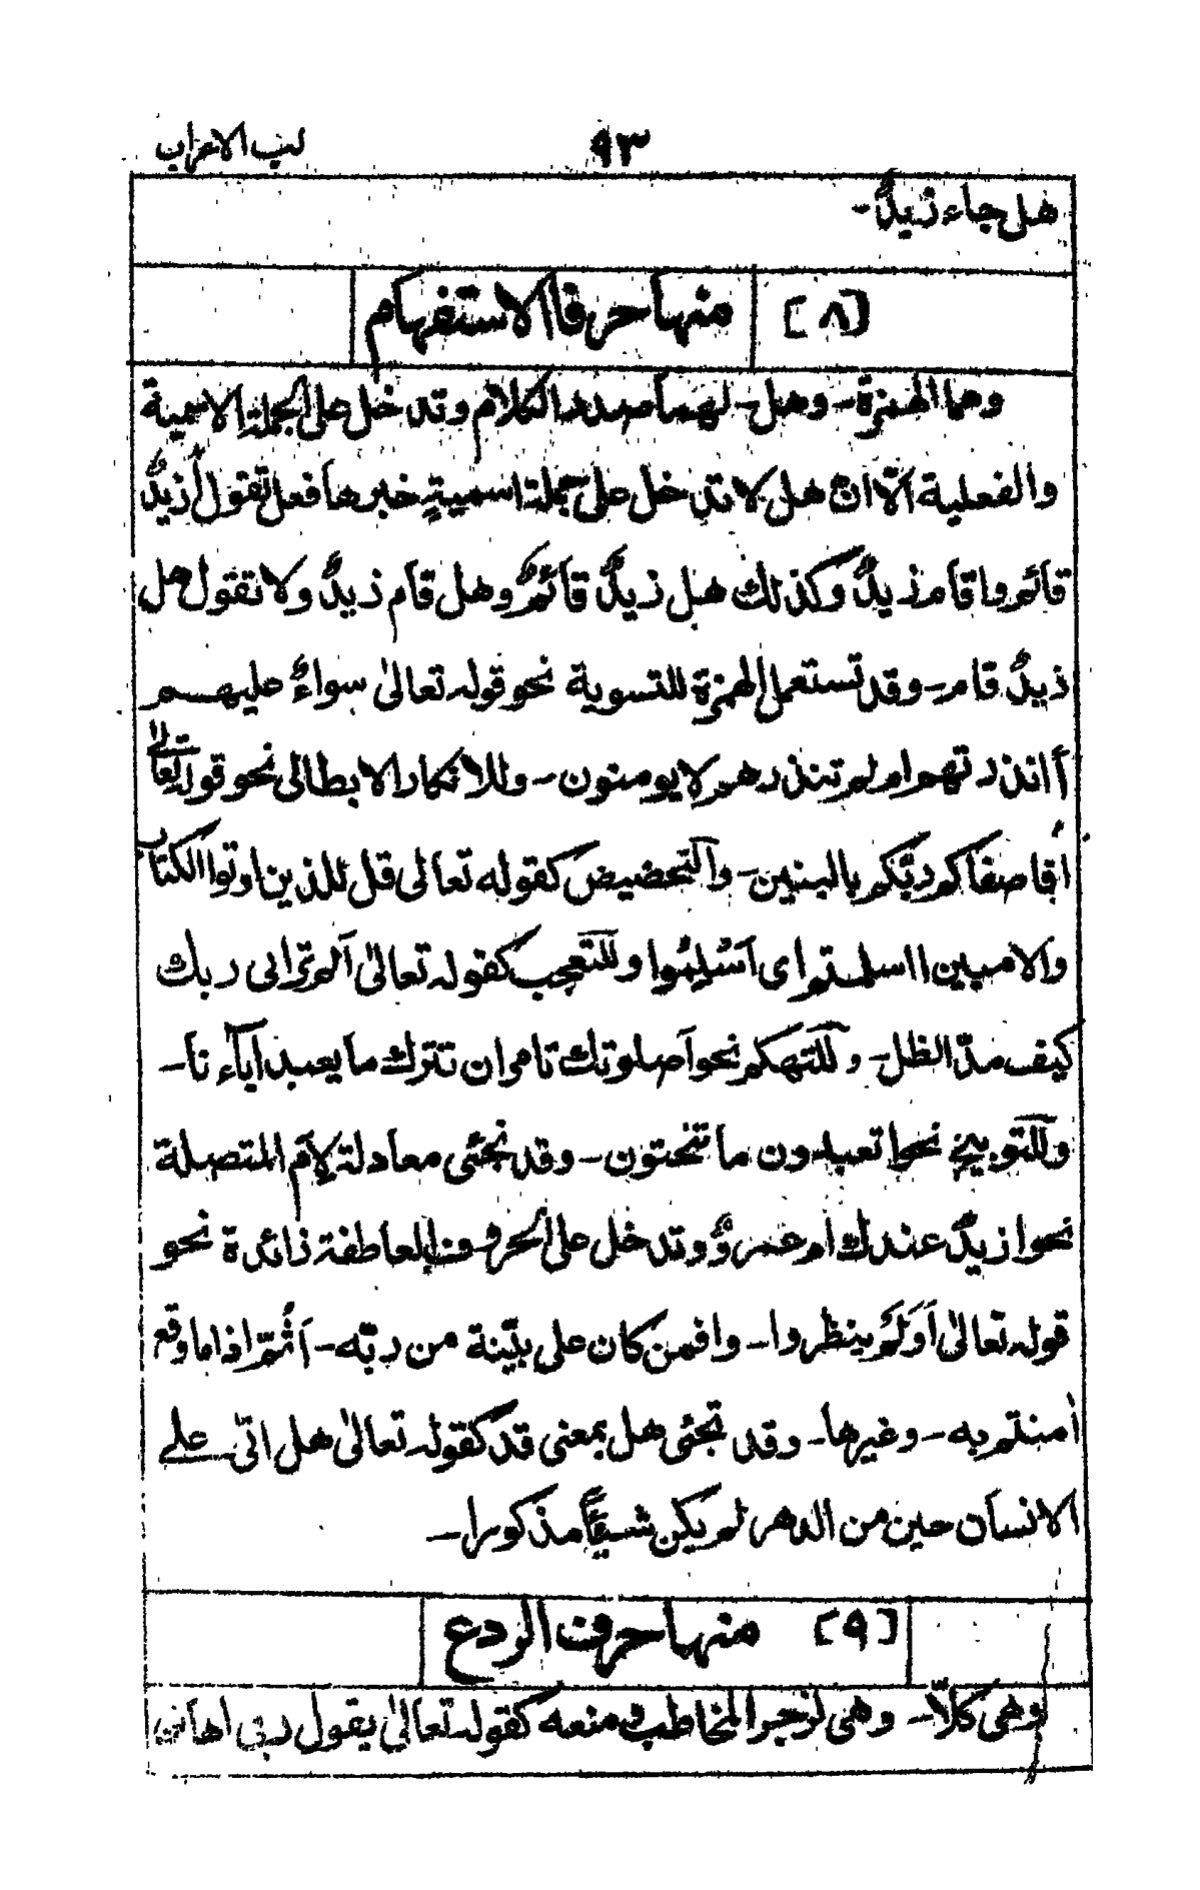 لب الاعراب
٩٣
هل جاء زيدٌ -
[٨] منها حرفا الاستفهام
وهما الهمزة - وهل - لهما صدر الكلام و تدخل على الجملة الاسمية
والفعلية الّا انّ هل لا تدخل على جملة اسميةٍ خبرها فعل تقول أزيدٌ
قائم و اقام زيدٌ وكذلك هل زيدٌ قائمٌ وهل قام زيدٌ ولا تقول هل
زيدٌ قام - وقد تستعمل الهمزة للتسوية نحو قوله تعالىٰ سواءٌ عليهم
أ انذرتهم ام لم تنذرهم لا يومنون - وللانكار الابطالى نحو قوله تعالىٰ
أفاصفاكم ربّكم بالبنين - والتحضيض كقوله تعالى قل للذين اوتوا الكتاب
والاميين ااسلمتم اى اَسْلِمُوا وللتعجب كقوله تعالىٰ اَلم تر الى ربك
كيف مدّ الظل - وللتهكم نحو أصلوتك تامر ان تترك ما يعبد آباءنا -
وللتوبيخ نحو اتعبدون ما تنحتون - وقد تجئى معادلة لاَم المتصلة
نحو ازيدٌ عندك ام عمروٌ و تدخل على الحروف العاطفة زائدة نحو
قوله تعالىٰ اَوَلَمْ ينظروا - وافمن كان على بيّنة من ربّه - اَثُمّ اذا ما وقع
اٰمنتم به - وغيرها - وقد تجئى هل بمعنى قد كقوله تعالىٰ هل اتىٰ على
الانسان حين من الدهر لم يكن شيئًا مذكورا -
[٩] منها حرف الردع
وهى كلّا - وهى لزجر المخاطب و منعه كقوله تعالىٰ يقول ربى اهانن